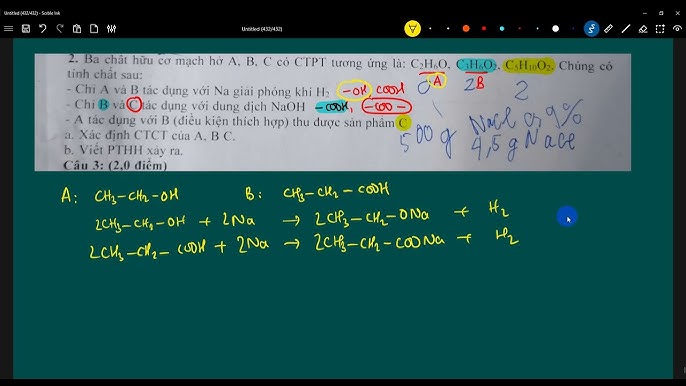 Untitled (432/432) - Scrble Ink
Untitled (432/432)
2. Ba chất hữu cơ mạch hở A, B, C có CTPT tương ứng là: C₂H₆O, C₃H₆O₂, C₅H₁₀O₂. Chúng có
tính chất sau:
- Chỉ A và B tác dụng với Na giải phóng khí H₂ -OH, COOH
O A 2 B 2
- Chỉ B và C tác dụng với dung dịch NaOH -COOH, -COO-
- A tác dụng với B (điều kiện thích hợp) thu được sản phẩm C
500g NaCl 0,9%
4,5g NaCl
a. Xác định CTCT của A, B C.
b. Viết PTHH xảy ra.
Câu 3: (2,0 điểm)
A: CH₃-CH₂-OH B: CH₃-CH₂-COOH
2CH₃-CH₂-OH + 2Na → 2CH₃-CH₂-ONa + H₂
2CH₃-CH₂-COOH + 2Na → 2CH₃-CH₂-COONa + H₂